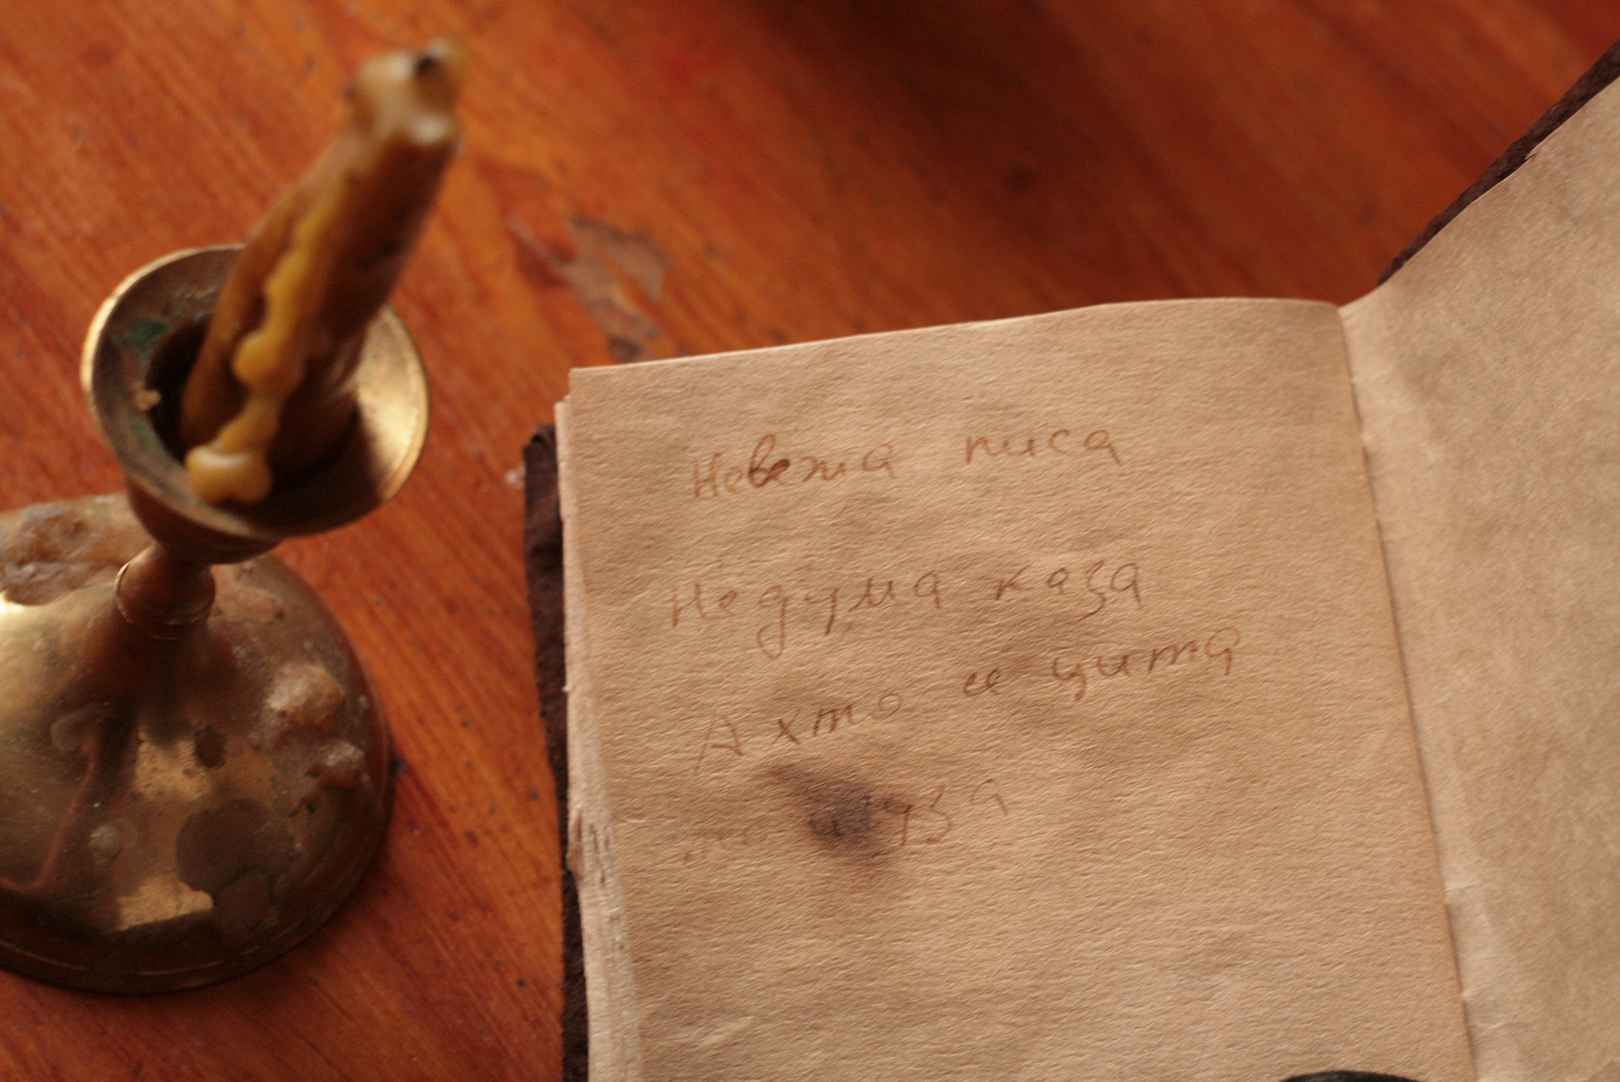 Невежа писа
Недума каза
А хто се цита